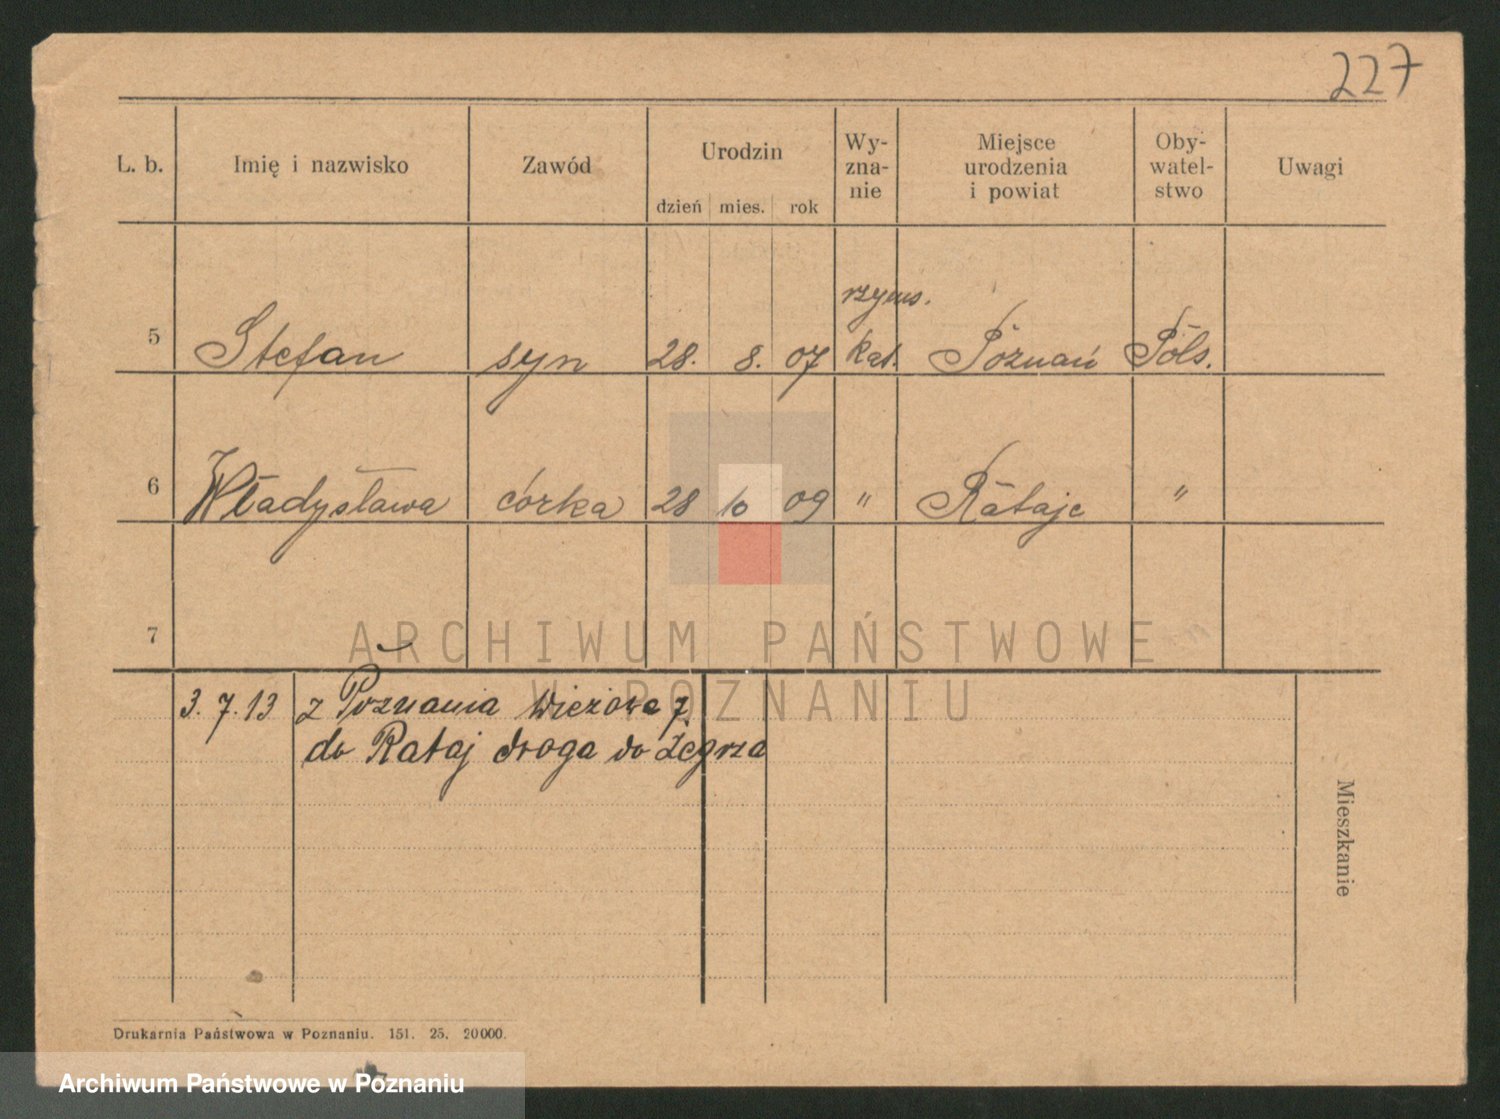 227
L. b. Imię i nazwisko Zawód Urodzin Wy- Miejsce Oby- Uwagi
zna- urodzenia watel-
nie i powiat stwo
dzień mies. rok
rzyms.
5 Stefan syn 28. 8. 07 kat. Poznań Pols.
6 Władysława córka 28 10 09 " Rataje "
7
ARCHIWUM PAŃSTWOWE
W POZNANIU
3. 7. 13 z Poznania Wieżowa 7
do Rataj droga do Żegrza
Mieszkanie
Drukarnia Państwowa w Poznaniu. 151. 25. 20000.
Archiwum Państwowe w Poznaniu